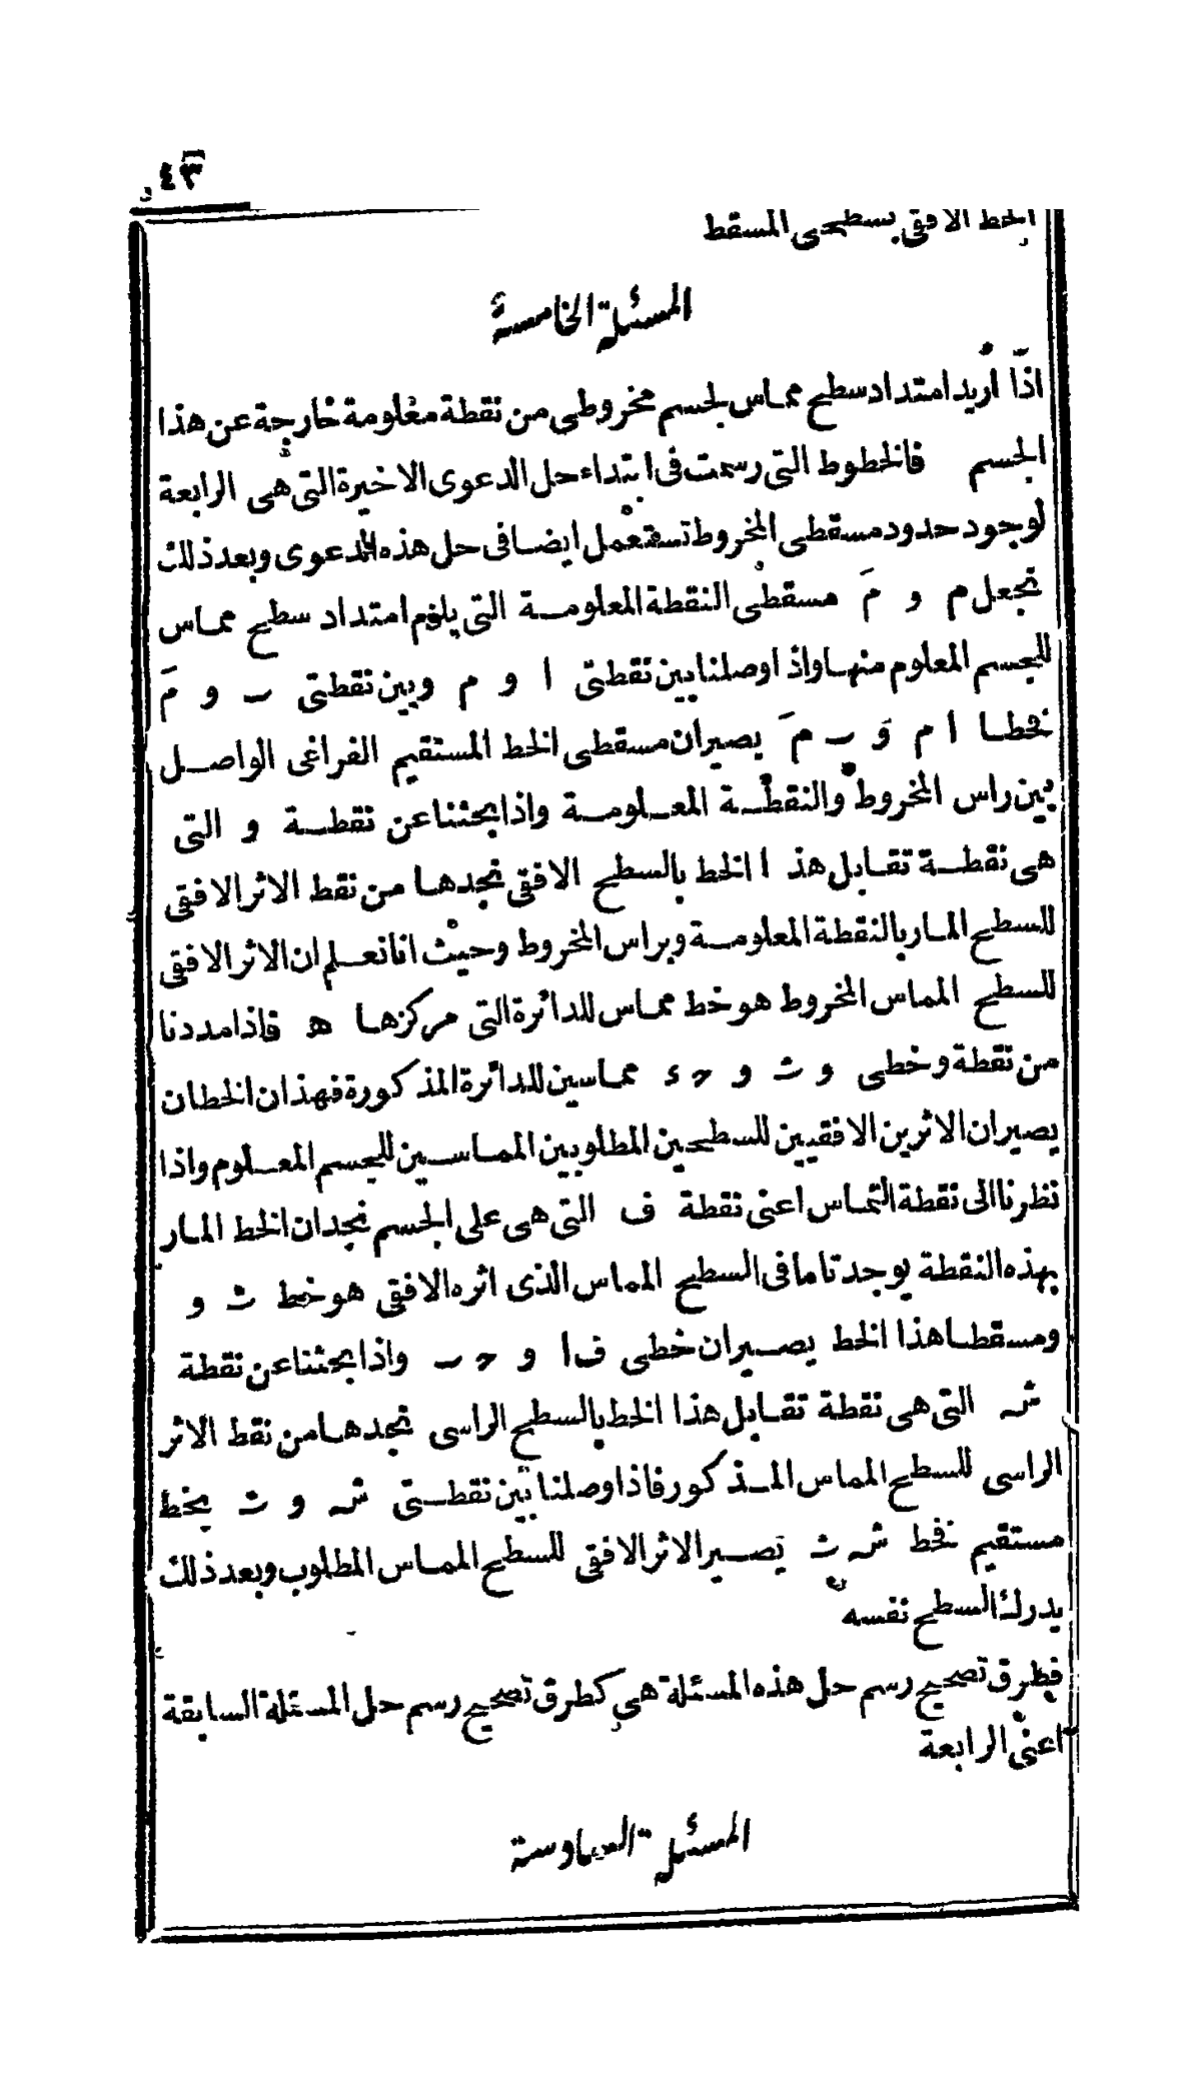 ٤٣
الخط الافقى بسطحى المسقط
المسئلة الخامسة
اذا أريد امتداد سطح مماس لجسم مخروطى من نقطة معلومة خارجة عن هذا
الجسم فالخطوط التى رسمت فى ابتداء حل الدعوى الاخيرة التى هى الرابعة
لوجود حدود مسقطى المخروط تستعمل ايضا فى حل هذه الدعوى وبعد ذلك
نجعل م و مَ مسقطى النقطة المعلومة التى يلزم امتداد سطح مماس
للجسم المعلوم منها واذا وصلنا بين نقطتى ا و م وبين نقطتى ب و مَ
نخطا ا م و ب مَ يصيران مسقطى الخط المستقيم الفراغى الواصل
بين راس المخروط والنقطة المعلومة واذا بحثنا عن نقطة و التى
هى نقطة تقابل هذا الخط بالسطح الافقى نجدها من نقط الاثر الافقى
للسطح المار بالنقطة المعلومة وبراس المخروط وحيث اننا نعلم ان الاثر الافقى
للسطح المماس المخروط هو خط مماس للدائرة التى مركزها ه فاذا مددنا
من نقطة و خطى و ث و ح ء مماسين للدائرة المذكورة فهذان الخطان
يصيران الاثرين الافقيين للسطحين المطلوبين المماسين للجسم المعلوم واذا
نظرنا الى نقطة التماس اعنى نقطة ف التى هى على الجسم نجد ان الخط المار
بهذه النقطة يوجد تاما فى السطح المماس الذى اثره الافقى هو خط ث و
ومسقطا هذا الخط يصيران خطى ف ا و ح ب واذا بحثنا عن نقطة
ش التى هى نقطة تقابل هذا الخط بالسطح الراسى نجدها من نقط الاثر
الراسى للسطح المماس المذكور فاذا وصلنا بين نقطتى ش و ث بخط
مستقيم نخط ش ث يصير الاثر الافقى للسطح المماس المطلوب وبعد ذلك
يدرك السطح نفسه
فطرق تصحيح رسم حل هذه المسئلة هى كطرق تصحيح رسم حل المسئلة السابقة
اعنى الرابعة
المسئلة السادسة